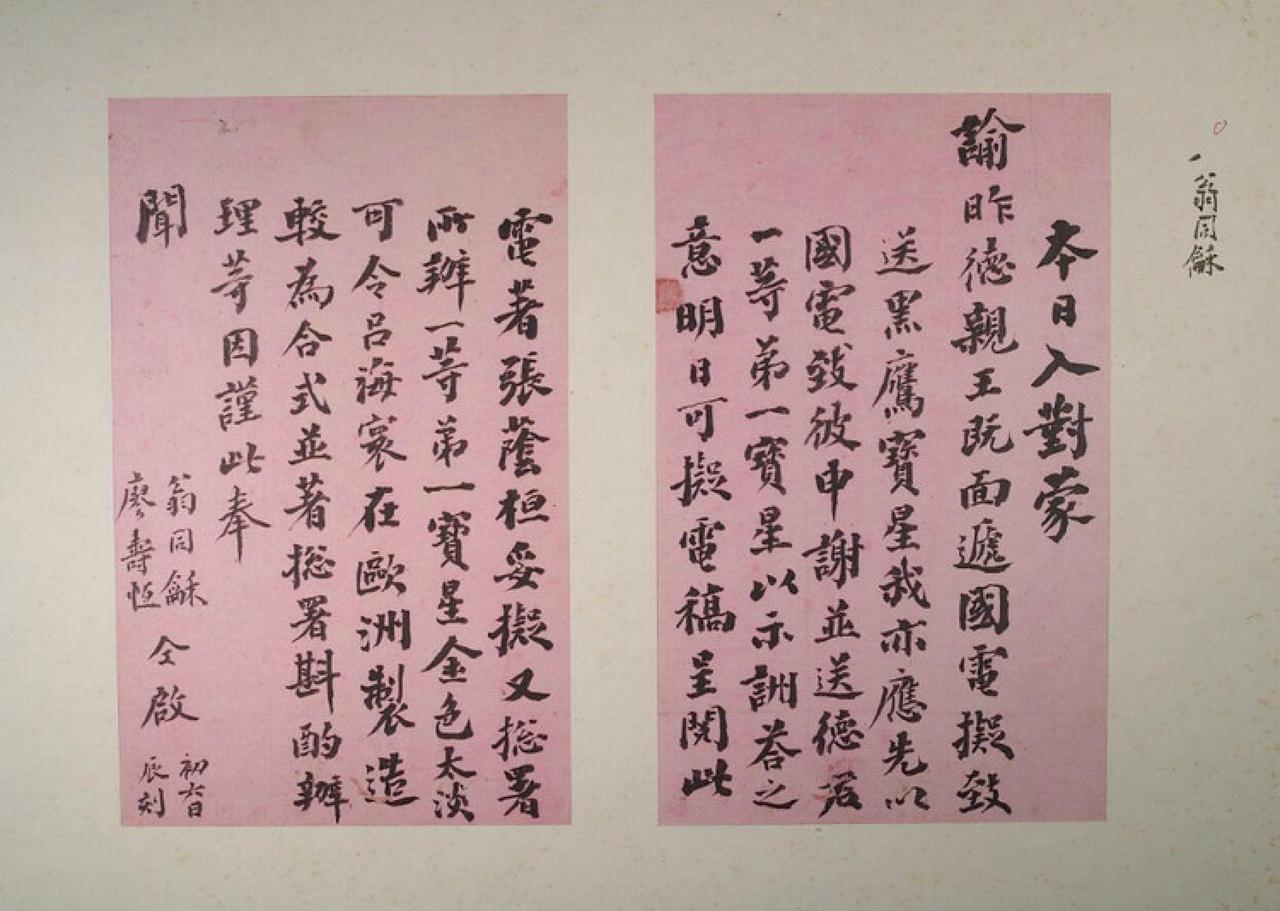 翁同龢
本日入對蒙
諭昨德親王既面遞國電擬致
送黑鷹寶星我亦應先以
國電致彼申謝並送德君
一等第一寶星以示詶荅之
意明日可擬電稿呈閱此
電著張蔭桓妥擬又総署
所辦一等第一寶星金色太淡
可令呂海寰在歐洲製造
較為合式並著総署斟酌辦
理等因謹此奉
聞
翁同龢
廖壽恒
仝啟
初六日
辰刻